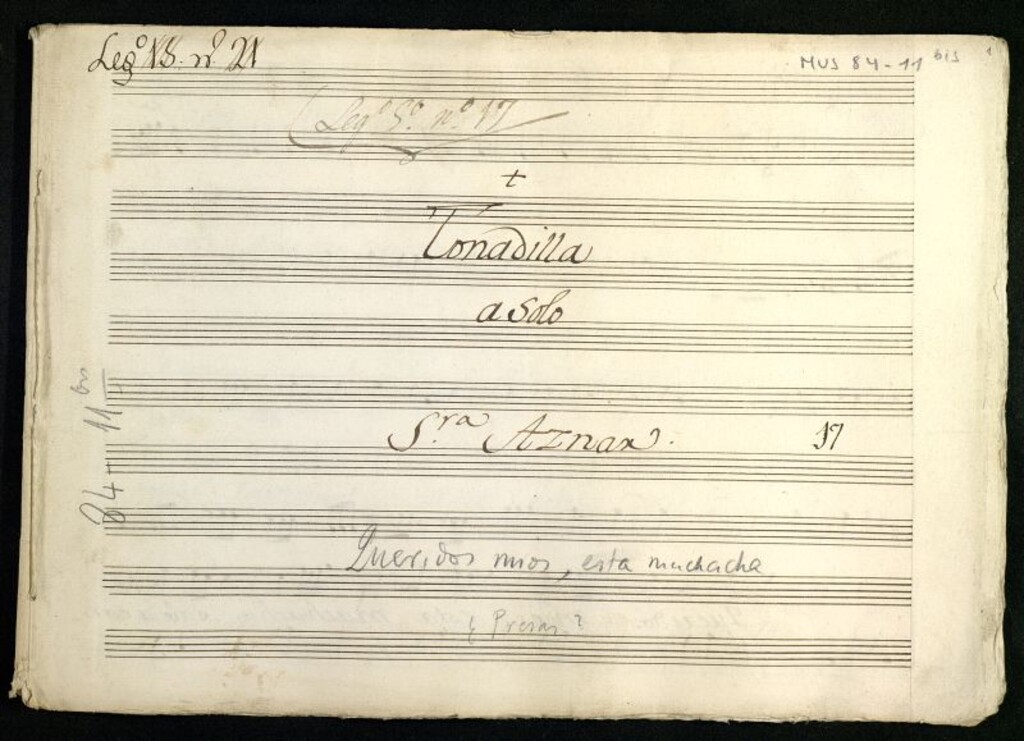 Leg.º 18. nº 21
MUS 84-11 bis
1
Leg.º 5.º nº 17
+
Tonadilla
a Solo
S.ra Aznar.
17
84-11 bis
Queridos mios, esta muchacha
¿ Presas ?